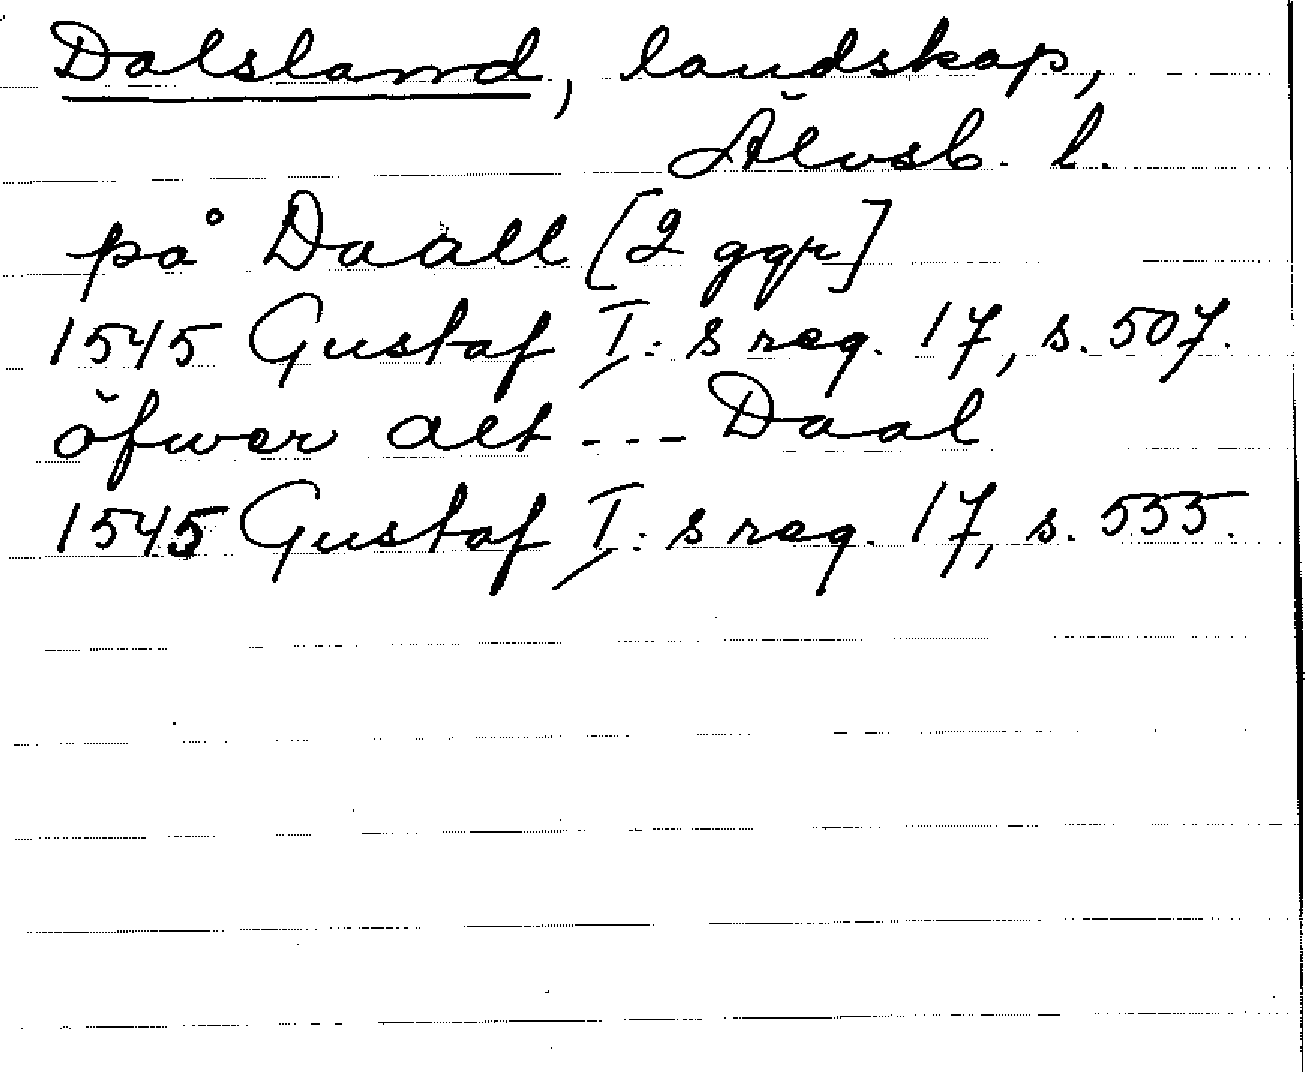 Dalsland, landskap,
Älvsb. l.
på Daall [2 ggr]
1545 Gustaf I:s reg. 17, s. 507.
öfwer alt --- Daal
1545 Gustaf I:s reg. 17, s. 555.